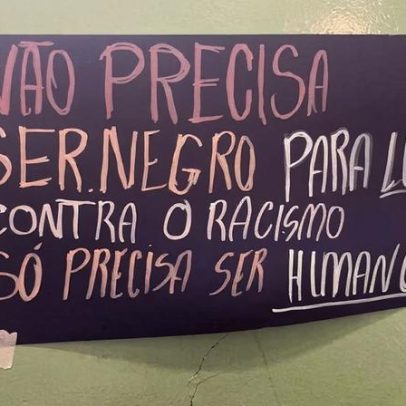 NÃO PRECISA
SER.NEGRO PARA
CONTRA O RACISMO
SÓ PRECISA SER HUMANO